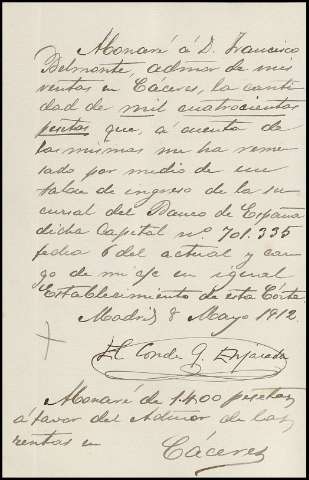 Abonaré á D. Francisco
Belmonte, admor de mis
rentas en Cáceres, la canti
dad de mil cuatrocientas
pesetas que, á cuenta de
las mismas me ha reme
sado por medio de un
talón de ingreso de la su
cursal del Banco de España
dicha Capital nº 701.335
fecha 6 del actual y car
go de mi a/c en igual
Establecimiento de esta Córte.
Madrid 8 Mayo 1912.
El Conde
Abonaré de 1.400 pesetas
á favor del Admor de las
rentas en Cáceres